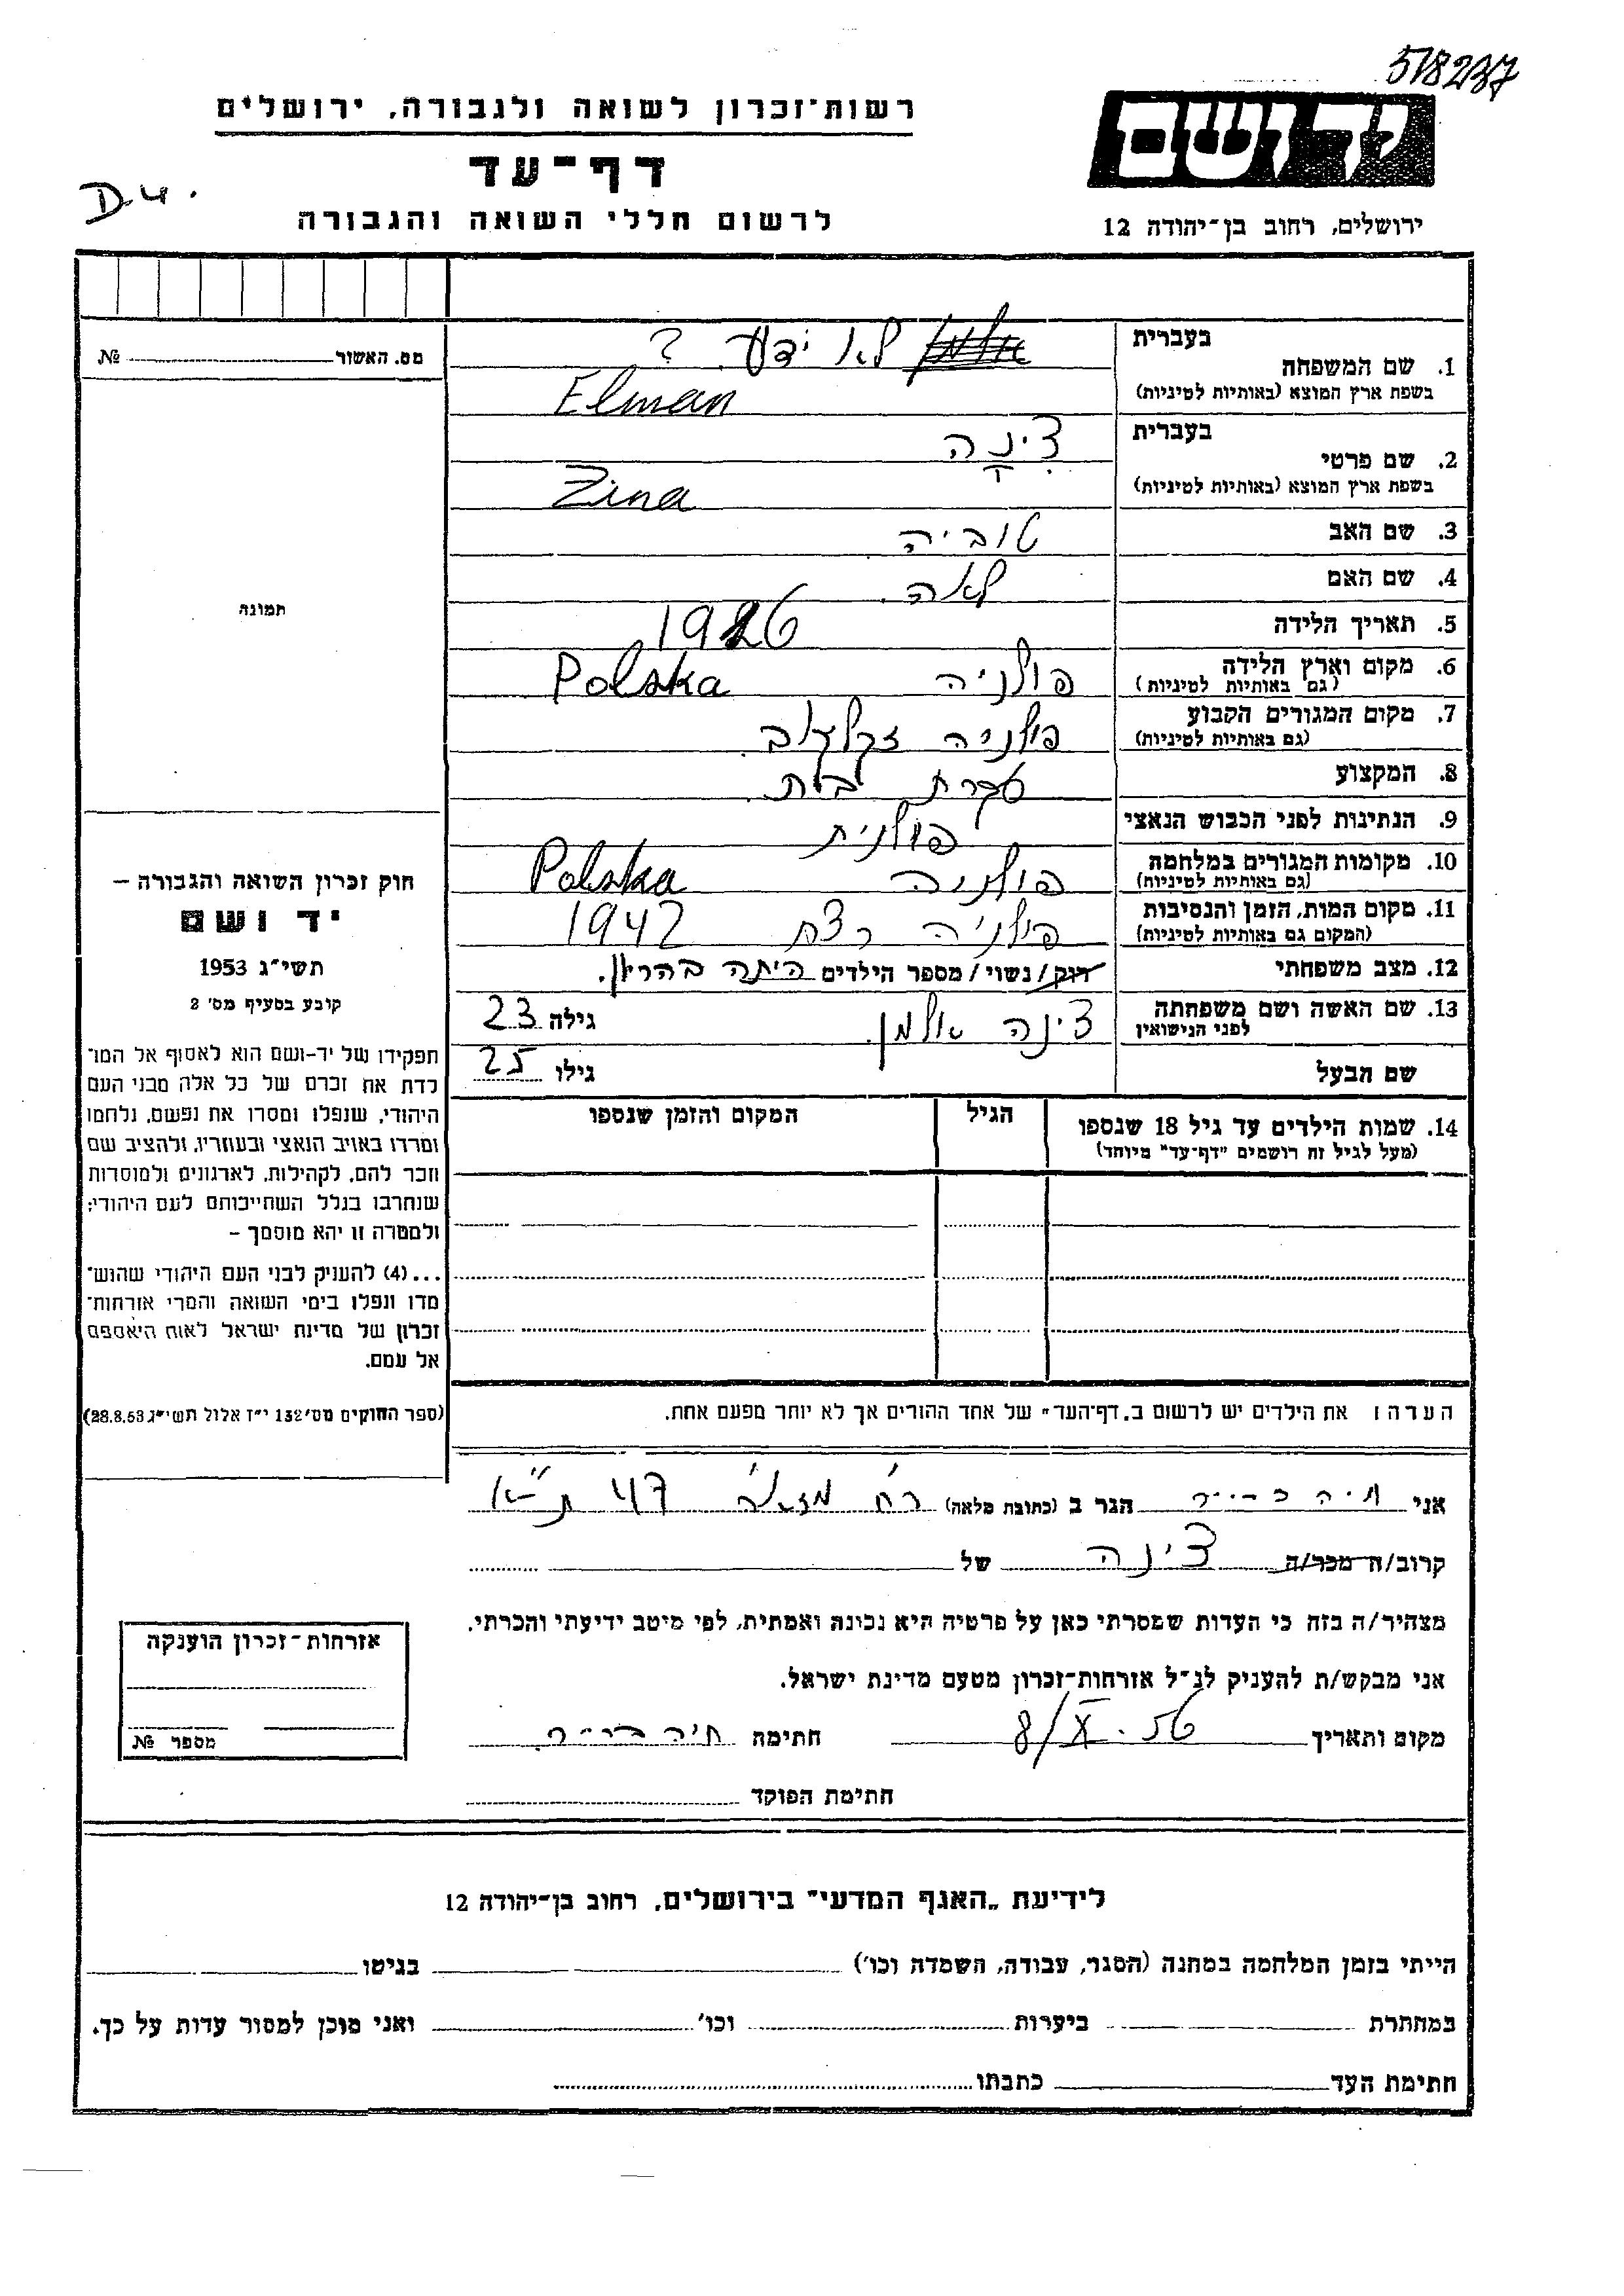 518237
רשות-זכרון לשואה ולגבורה, ירושלים
יד ושם
דף-עד
D.4.
לרשום חללי השואה והגבורה
ירושלים, רחוב בן-יהודה 12
מס. האשור № 
בעברית
1. שם המשפחה לא ידע ?
בשפת ארץ המוצא (באותיות לטיניות) Elman
בעברית
2. שם פרטי צינה
בשפת ארץ המוצא (באותיות לטיניות) Zina
3. שם האב טוביה
4. שם האם לאה
תמונה
5. תאריך הלידה 1926
6. מקום וארץ הלידה פולניה Polska
(גם באותיות לטיניות)
7. מקום המגורים הקבוע פולניה
(גם באותיות לטיניות)
8. המקצוע עקרת בית
9. הנתינות לפני הכבוש הנאצי פולנית
10. מקומות המגורים במלחמה פולניה Polska
(גם באותיות לטיניות)
11. מקום המות, הזמן והנסיבות פולניה רצח 1942
(המקום גם באותיות לטיניות)
12. מצב משפחתי רווק/נשוי/מספר הילדים היתה בהריון.
13. שם האשה ושם משפחתה צינה אלמן גילה 23
לפני הנישואין
שם הבעל גילו 25
14. שמות הילדים עד גיל 18 שנספו הגיל המקום והזמן שנספו
(מעל לגיל זה רושמים "דף-עד" מיוחד)
חוק זכרון השואה והגבורה –
יד ושם
תשי"ג 1953
קובע בסעיף מס' 2
תפקידו של יד-ושם הוא לאסוף אל המו־
לדת את זכרם של כל אלה מבני העם
היהודי, שנפלו ומסרו את נפשם, נלחמו
ומרדו באויב הנאצי ובעוזריו, ולהציב שם
וזכר להם, לקהילות, לארגונים ולמוסדות
שנחרבו בגלל השתייכותם לעם היהודי;
ולמטרה זו יהא מוסמך –
...(4) להעניק לבני העם היהודי שהוש־
מדו ונפלו בימי השואה והמרי אזרחות־
זכרון של מדינת ישראל לאות היאספם
אל עמם.
(ספר החוקים מס' 132 י"ז אלול תשי"ג 28.8.53)
הערה: את הילדים יש לרשום ב„דף-העד" של אחד ההורים אך לא יותר מפעם אחת.
אני חיה הגר ב (כתובת מלאה) רח' 47 ת"א
קרוב/ה מכר/ה צינה של
מצהיר/ה בזה כי העדות שמסרתי כאן על פרטיה היא נכונה ואמתית, לפי מיטב ידיעתי והכרתי.
אני מבקש/ת להעניק לנ"ל אזרחות-זכרון מטעם מדינת ישראל.
מקום ותאריך 8/X.56 חתימה חיה
חתימת הפוקד
אזרחות-זכרון הוענקה
מספר №
לידיעת „האגף המדעי" בירושלים, רחוב בן-יהודה 12
הייתי בזמן המלחמה במחנה (הסגר, עבודה, השמדה וכו') בגיטו
במחתרת ביערות וכו' ואני מוכן למסור עדות על כך.
חתימת העד כתבתו